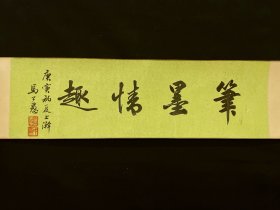 筆墨情趣
庚寅初夏上澣